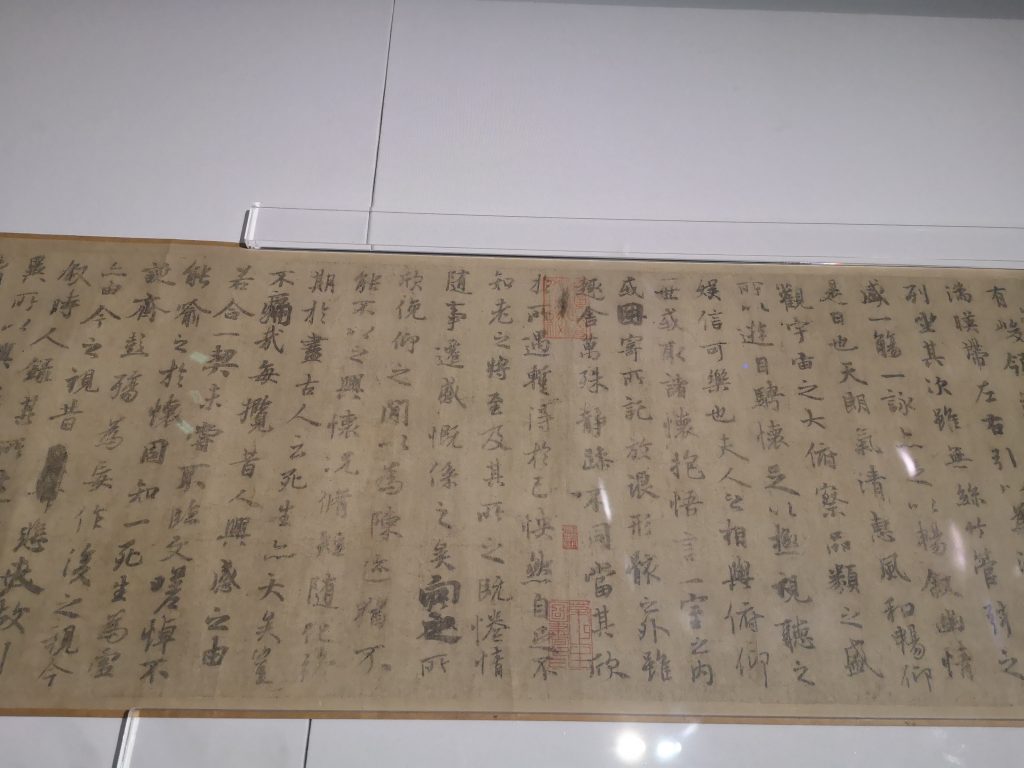 有峻領
湍暎帶左右引以
列坐其次雖無絲竹管弦之
盛一觴一詠亦足以暢敘幽情
是日也天朗氣清惠風和暢仰
觀宇宙之大俯察品類之盛
所以遊目騁懷足以極視聽之
娛信可樂也夫人之相與俯仰
一世或取諸懷抱悟言一室之內
或因寄所託放浪形骸之外雖
趣舍萬殊靜躁不同當其欣
於所遇暫得於己怏然自足不
知老之將至及其所之既惓情
隨事遷感慨係之矣向之所
欣俛仰之閒以為陳迹猶不
能不以之興懷況脩短隨化終
期於盡古人云死生亦大矣豈
不痛哉每攬昔人興感之由
若合一契未嘗不臨文嗟悼不
能喻之於懷固知一死生為虛
誕齊彭殤為妄作後之視今
亦由今之視昔悲夫故列
敘時人錄其所述
異所以興